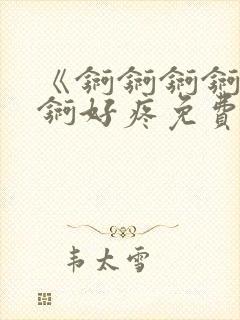 《锕锕锕锕
锕好疼免費
韦太雪